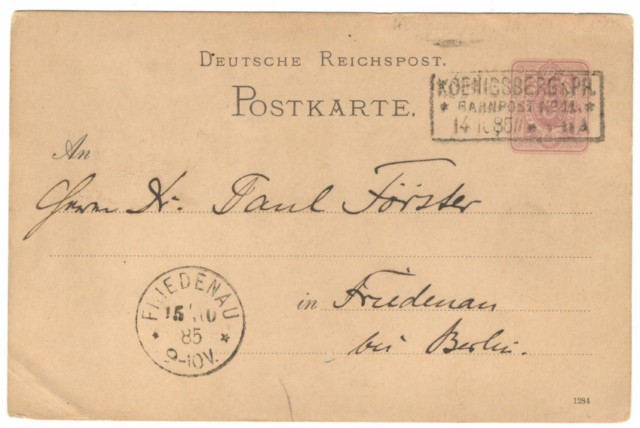 DEUTSCHE REICHSPOST.
POSTKARTE.
KOENIGSBERG i. PR.
* BAHNPOST No 11. *
14 10 85 II
An
Herrn Dr. Paul Förster
in Friedenau
bei Berlin.
FRIEDENAU
15 10
85
9-10V.
1284